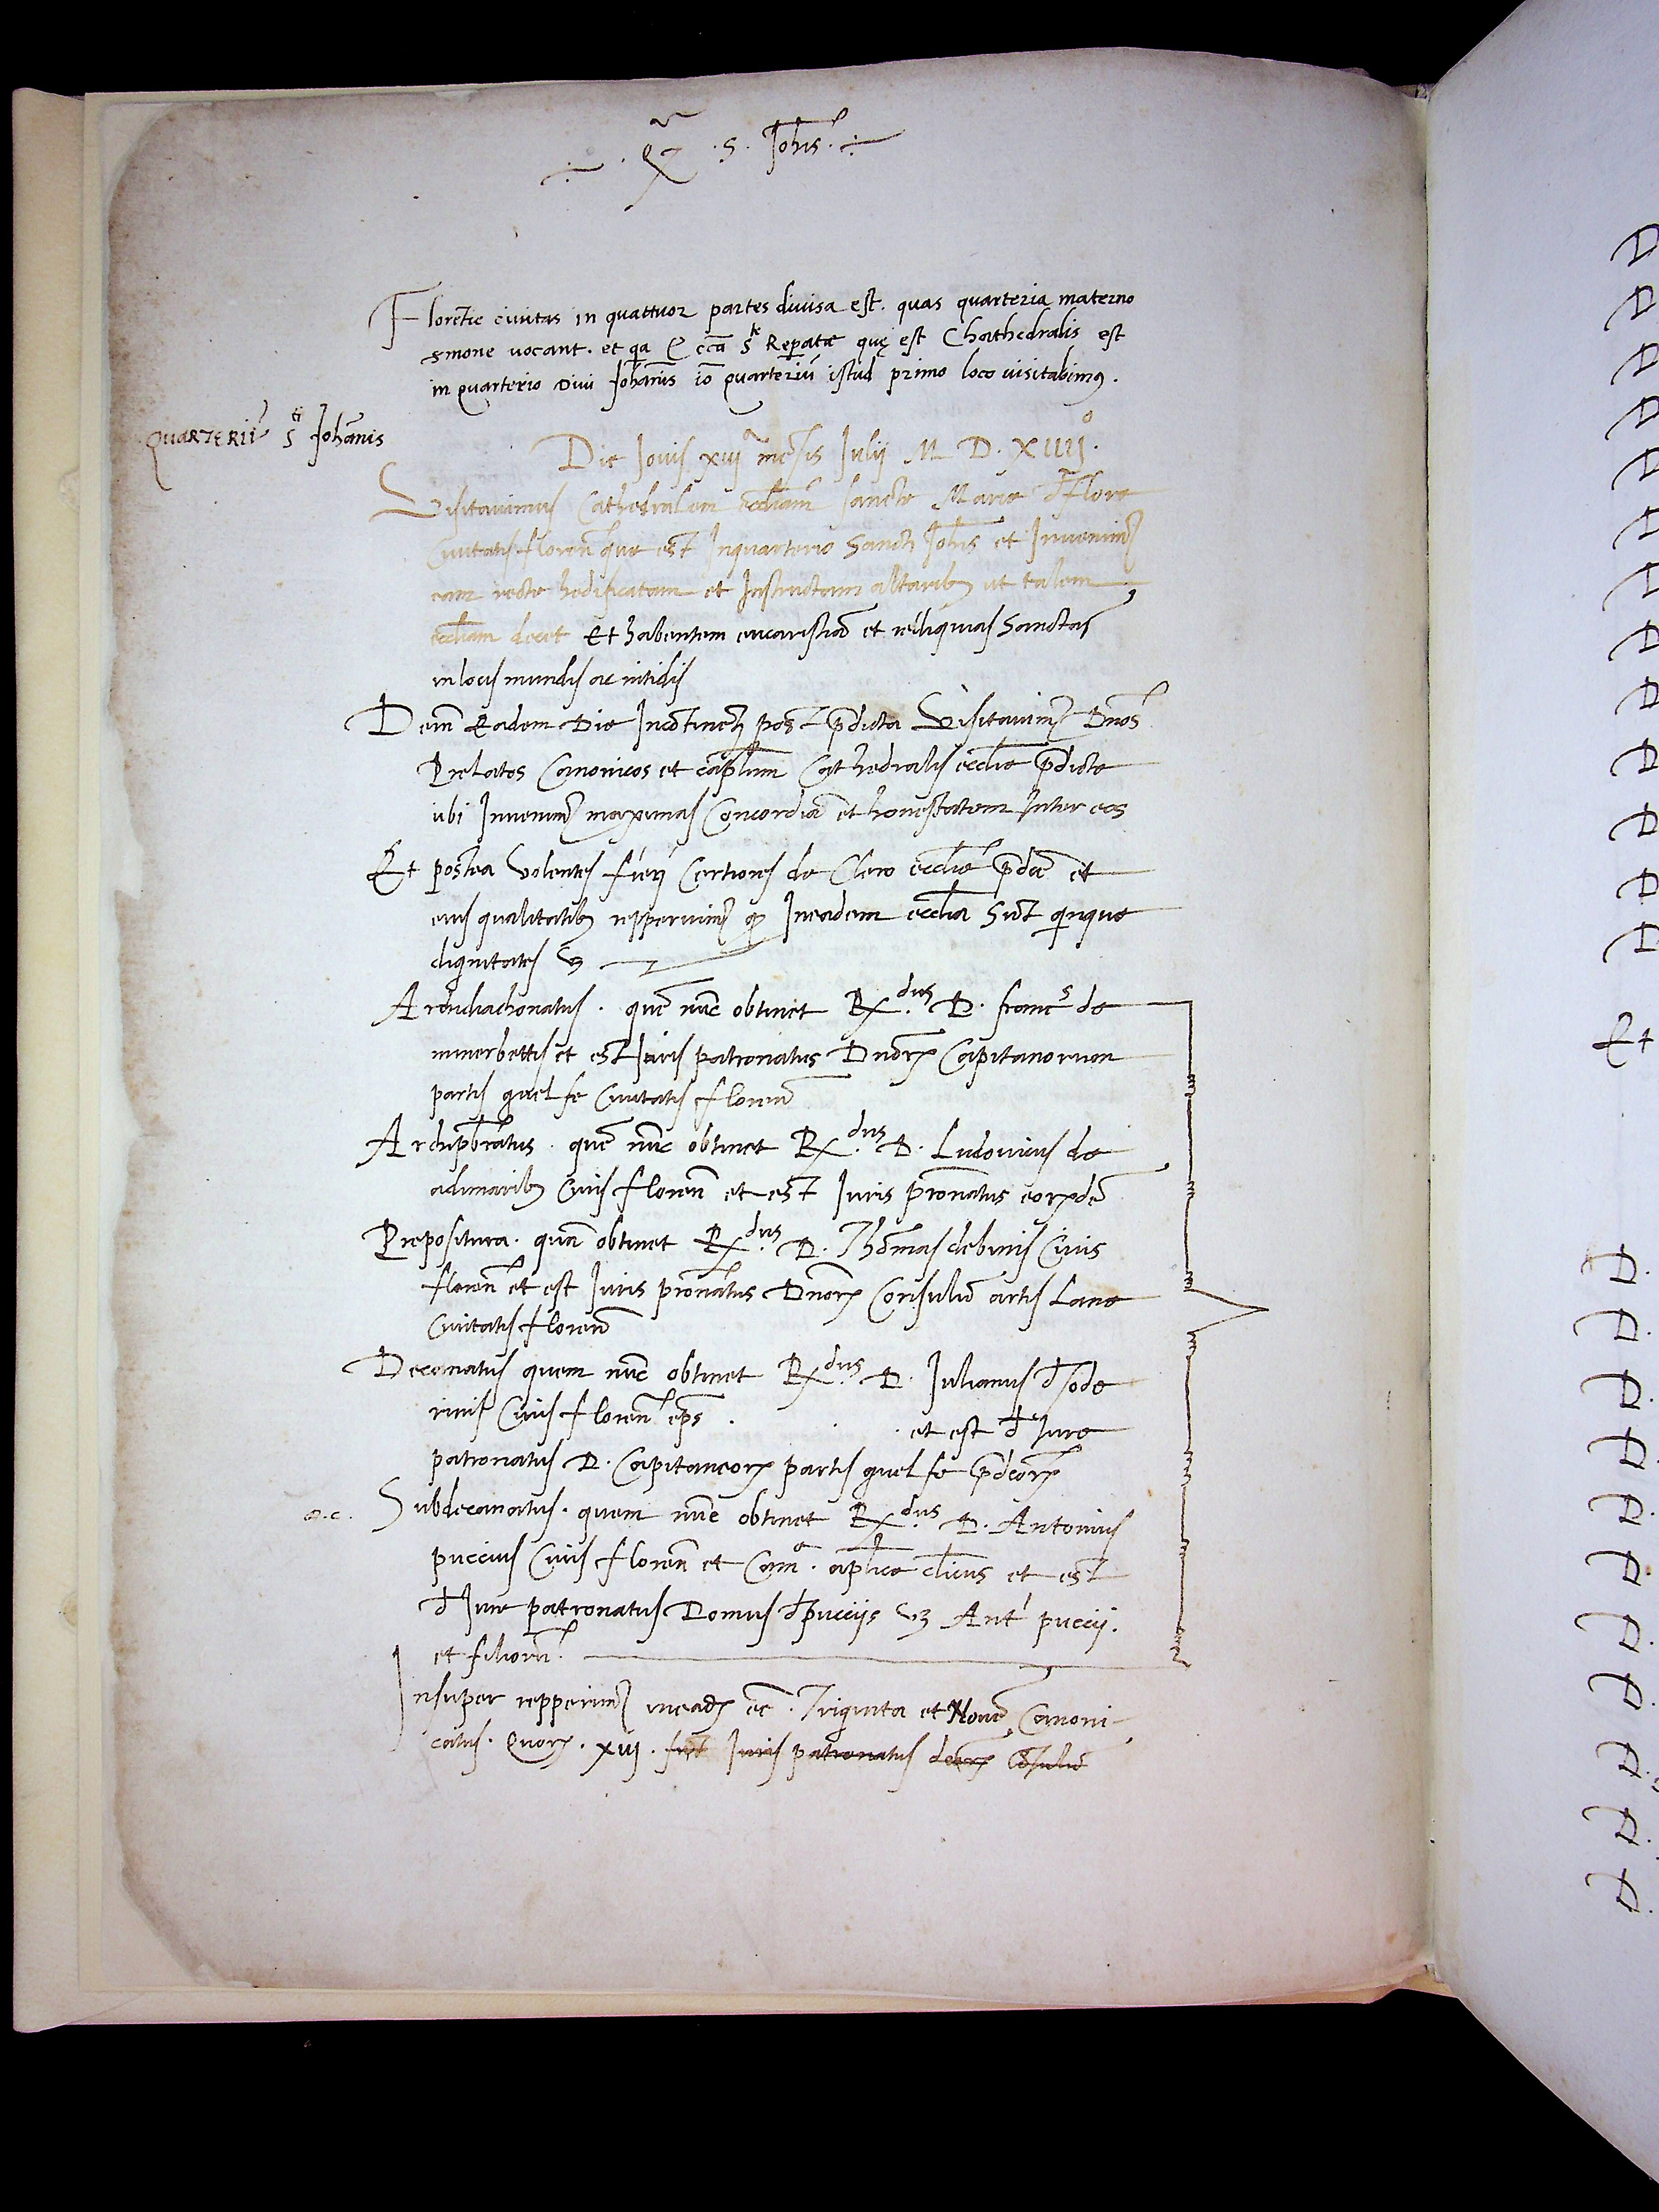 Qᵃ · S · Joħis
Florētie civitas in quattuor partes divisa est. quas quarteria materno
s̄mone vocant. et q̄a eccā Sᵗᵉ Reparatæ quę est Chathedralis est
in quarterio Divi Johānis iō Quarteriū istud primo loco visitabimꝰ.
QUARTERIŪ Sᵗⁱ Johānis
Die Jovis xiijᵃ mēsis Julij M D. XIIIJº.
Visitavimus Cathedralem eccliam sancte Marie đ Flore
Civitatis Floren̄ que est Inquarterio Sancti Joħis et Invenimꝰ
eam recte hedificatam et Instructam altaribꝫ ut talem
eccliam decet Et habentem eucaristiā et reliquias Sanctas
in locis mundis ac nitidis
Dein̄ Eadem Die Incōtinētj post p̄dicta Visitavimꝰ Dn̄os
Prelatos Canonicos et capłum Cathedralis ecclie p̄dicte
ubi Invenimꝰ maximas Concordiā et honestatem Inter eos
Et postea Volentes fierj Certiores de Clero ecclie p̄dce et
eius qualitatibꝫ repperimꝰ ꝙ Ineadem ecclia Sūt qinque
dignitates vꝫ
Archidiachonatus. quē nūc obtinet Rx.dus D. francˢ de
minerbettis et est Juris patronatus Dnōrꝫ Capitanorum
partis guelfe Civitatis Floren̄
Archip̄bratus. quē nūc obtinet Rx.dus D. Ludovicus de
adimaribꝫ Civis Floren̄ et est Juris pron̄atus eorꝫdē
Prepositura. quā obtinet Rx.dus D. Thōmas debinis Civis
floren̄ et est Juris pron̄atus Dnōrꝫ Consulū artis Lane
Civitatis Floren̄
Decanatus quem nūc obtinet Rx.dus D. Julianus đ sode
rinis Civis Floren̄ ep̄s . . et est đ Jure
patronatus D. Capitaneorꝫ partis guelfe p̄dcorꝫ
a.c. Subdecanatus. quem nūc obtinet Rx.dus D. Antonius
puccius Civis Floren̄ et Camᵉ. aplice clicus et est
đ Jure patronatus Domus đ pucciis vꝫ Antⁱ puccij.
et filiorū.
Insuper repperimꝰ ineadꝫ ec̄. Triginta et Novē Canoni-
catus. Quorꝫ. xiij. sūt Juris patronatus dcorꝫ Cōsulū
D
D
D
D
D
D
D
D
D
D
D
D
D
Et
D.
D.
D.
D.
D.
D.
D.
D.
D.
D.
D.